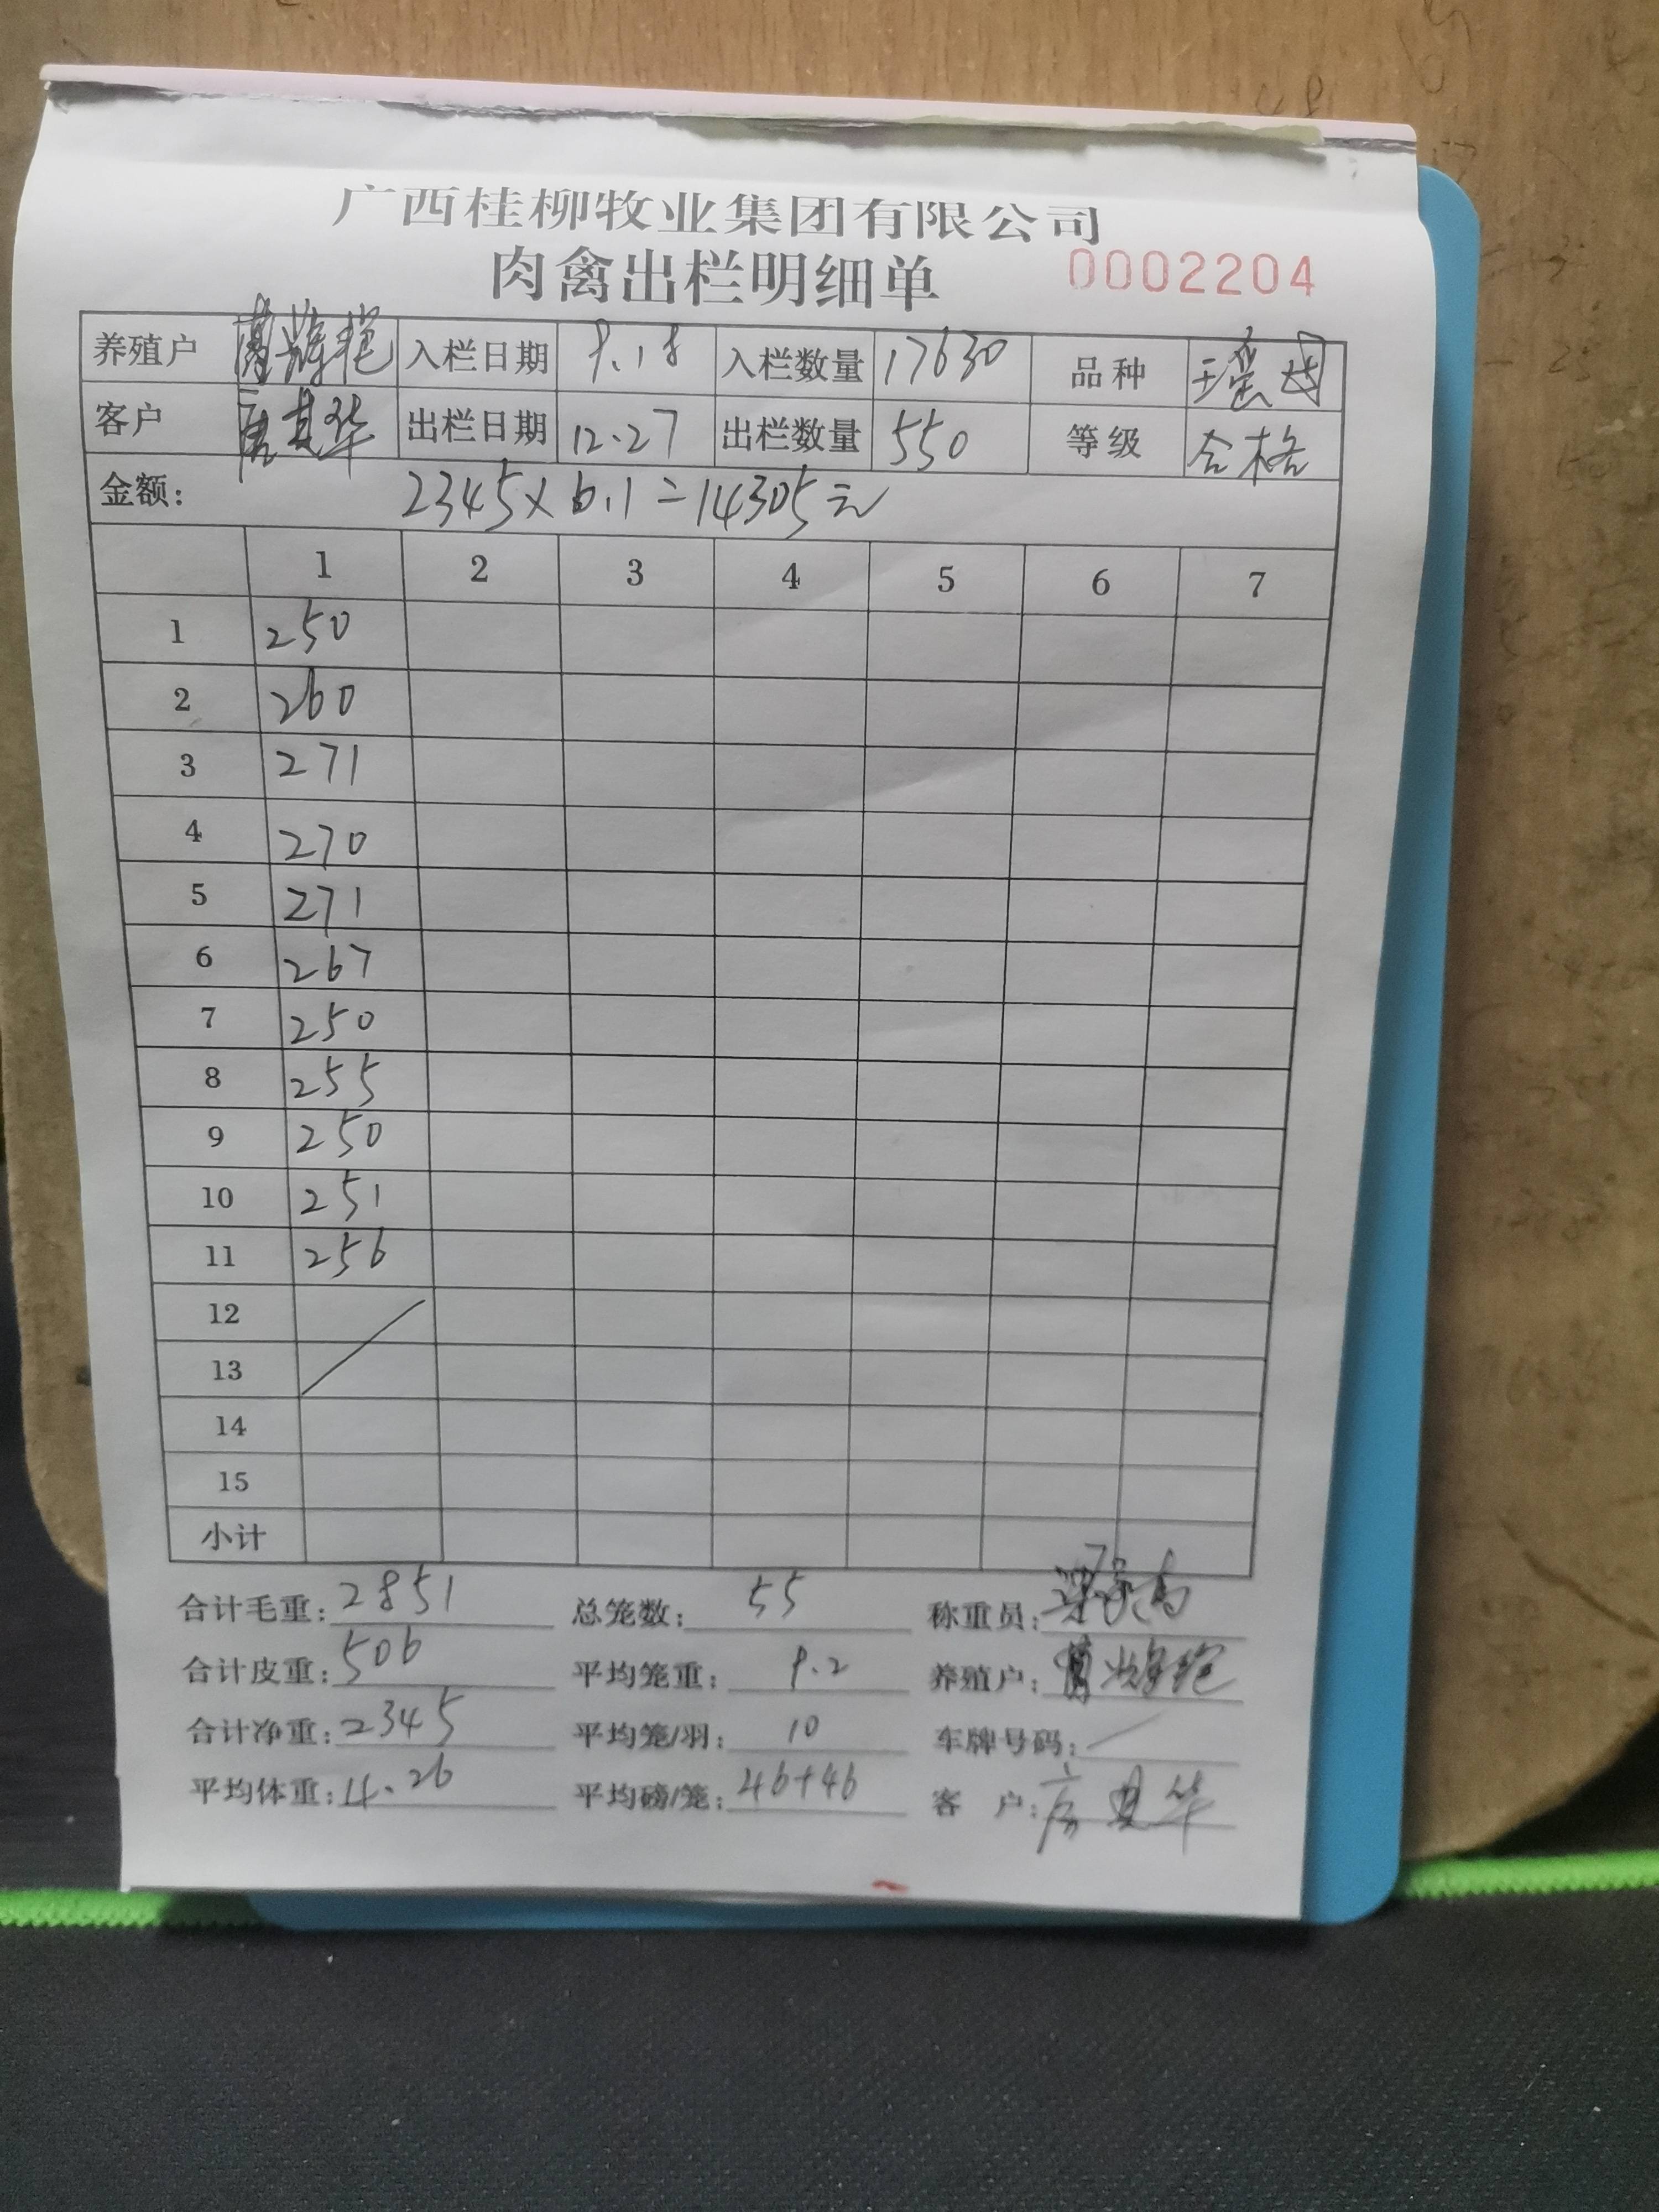 广西桂柳牧业集团有限公司
肉禽出栏明细单 0002204
养殖户 入栏日期 9.18 入栏数量 17630 品种 瑶
客户 其华 出栏日期 12.27 出栏数量 550 等级 合格
金额: 2345×6.1=14305元
1 2 3 4 5 6 7
1 250
2 260
3 271
4 270
5 271
6 267
7 250
8 255
9 250
10 251
11 256
12
13
14
15
小计
合计毛重: 2851 总笼数: 55 称重员:
合计皮重: 506 平均笼重: 9.2 养殖户:
合计净重: 2345 平均笼/羽: 10 车牌号码: /
平均体重: 4.26 平均磅/笼: 46+46 客 户: 其华